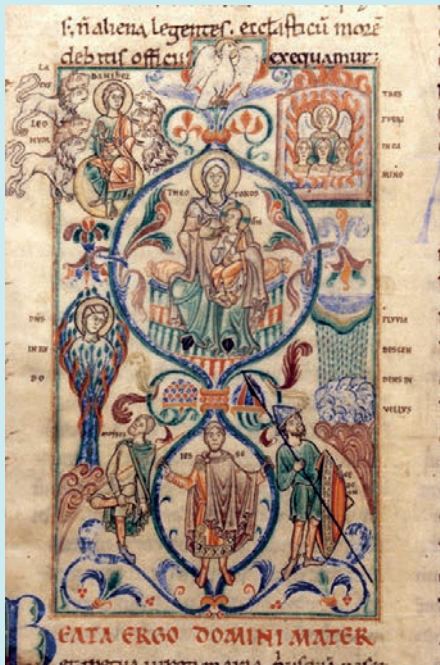 s; n̄ aliena legentes. ecclasticū morē
debitis officiis exequamur:
LA
CUS
LEO
NUM
DANIHEL
TRES
PUERI
IN CA
MINO
THEO
TOKOS
DNS
IN RU
BO
PLUVIA
DESCEN
DENS IN
VELLUS
MOYSES
IES
SE
GE
DE
ON
BEATA ERGO DOMINI MATER